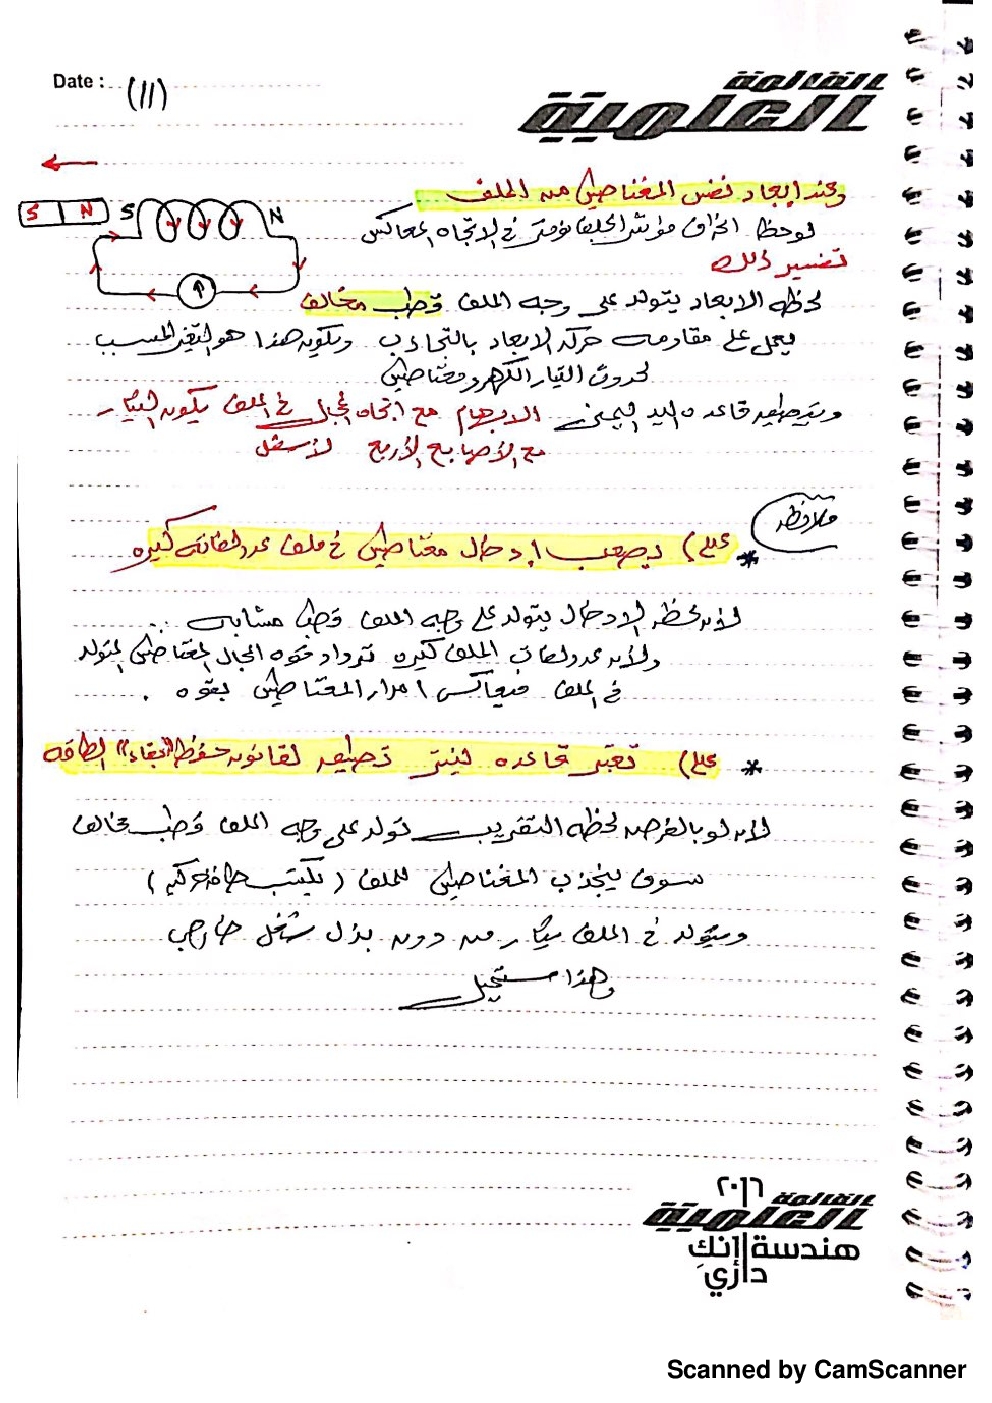 Date :
(11)
القائمة
العلمية
وعند إبعاد نفس المغناطيس من الملف
لوحظ انحراف مؤشر الجلفانومتر في الاتجاه المعاكس
تفسير ذلك
لحظة الابعاد يتولد على وجه الملف قطب مخالف
يعمل على مقاومة حركة الابعاد بالتجاذب ويكون هذا هو التغير المسبب
لحدوث التيار الكهرومغناطيسي
وبتطبيق قاعدة اليد اليمنى الابهام مع اتجاه المجال في الملف يكون التيار
مع الأصابع الأربع لأسفل
S N S N
ملاحظة
* علل) يصعب إدخال مغناطيس في ملف عدد لفاته كبيرة
لأنه لحظة الادخال يتولد على وجه الملف قطب مشابه
ولأنه عدد لفات الملف كبيرة تزداد قوة المجال المغناطيسي المتولد
في الملف فيعاكس امرار المغناطيس بقوة .
* علل) تعتبر قاعدة لينتز تطبيق لقانون حفظ "بقاء" الطاقة
لأنه لو بالفرض لحظة التقريب تولد على وجه الملف قطب مخالف
سوف ينجذب المغناطيس للملف (يكتسب طاقة حركية)
ويتولد في الملف تيار من دون بذل شغل خارجي
وهذا مستحيل
٢٠١٦
القائمة
العلمية
هندسة إنكِ
دازي
Scanned by CamScanner